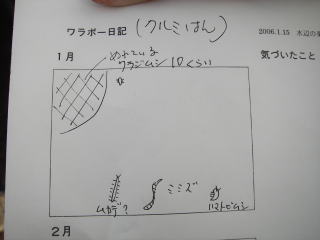 ワラボー日記 (クルミはん)
2006.1.15 水辺の
1月
気づいたこと
めれている
ワラジムシ 10くらい
ムカデ?
ミミズ
ハマトビムシ
2月